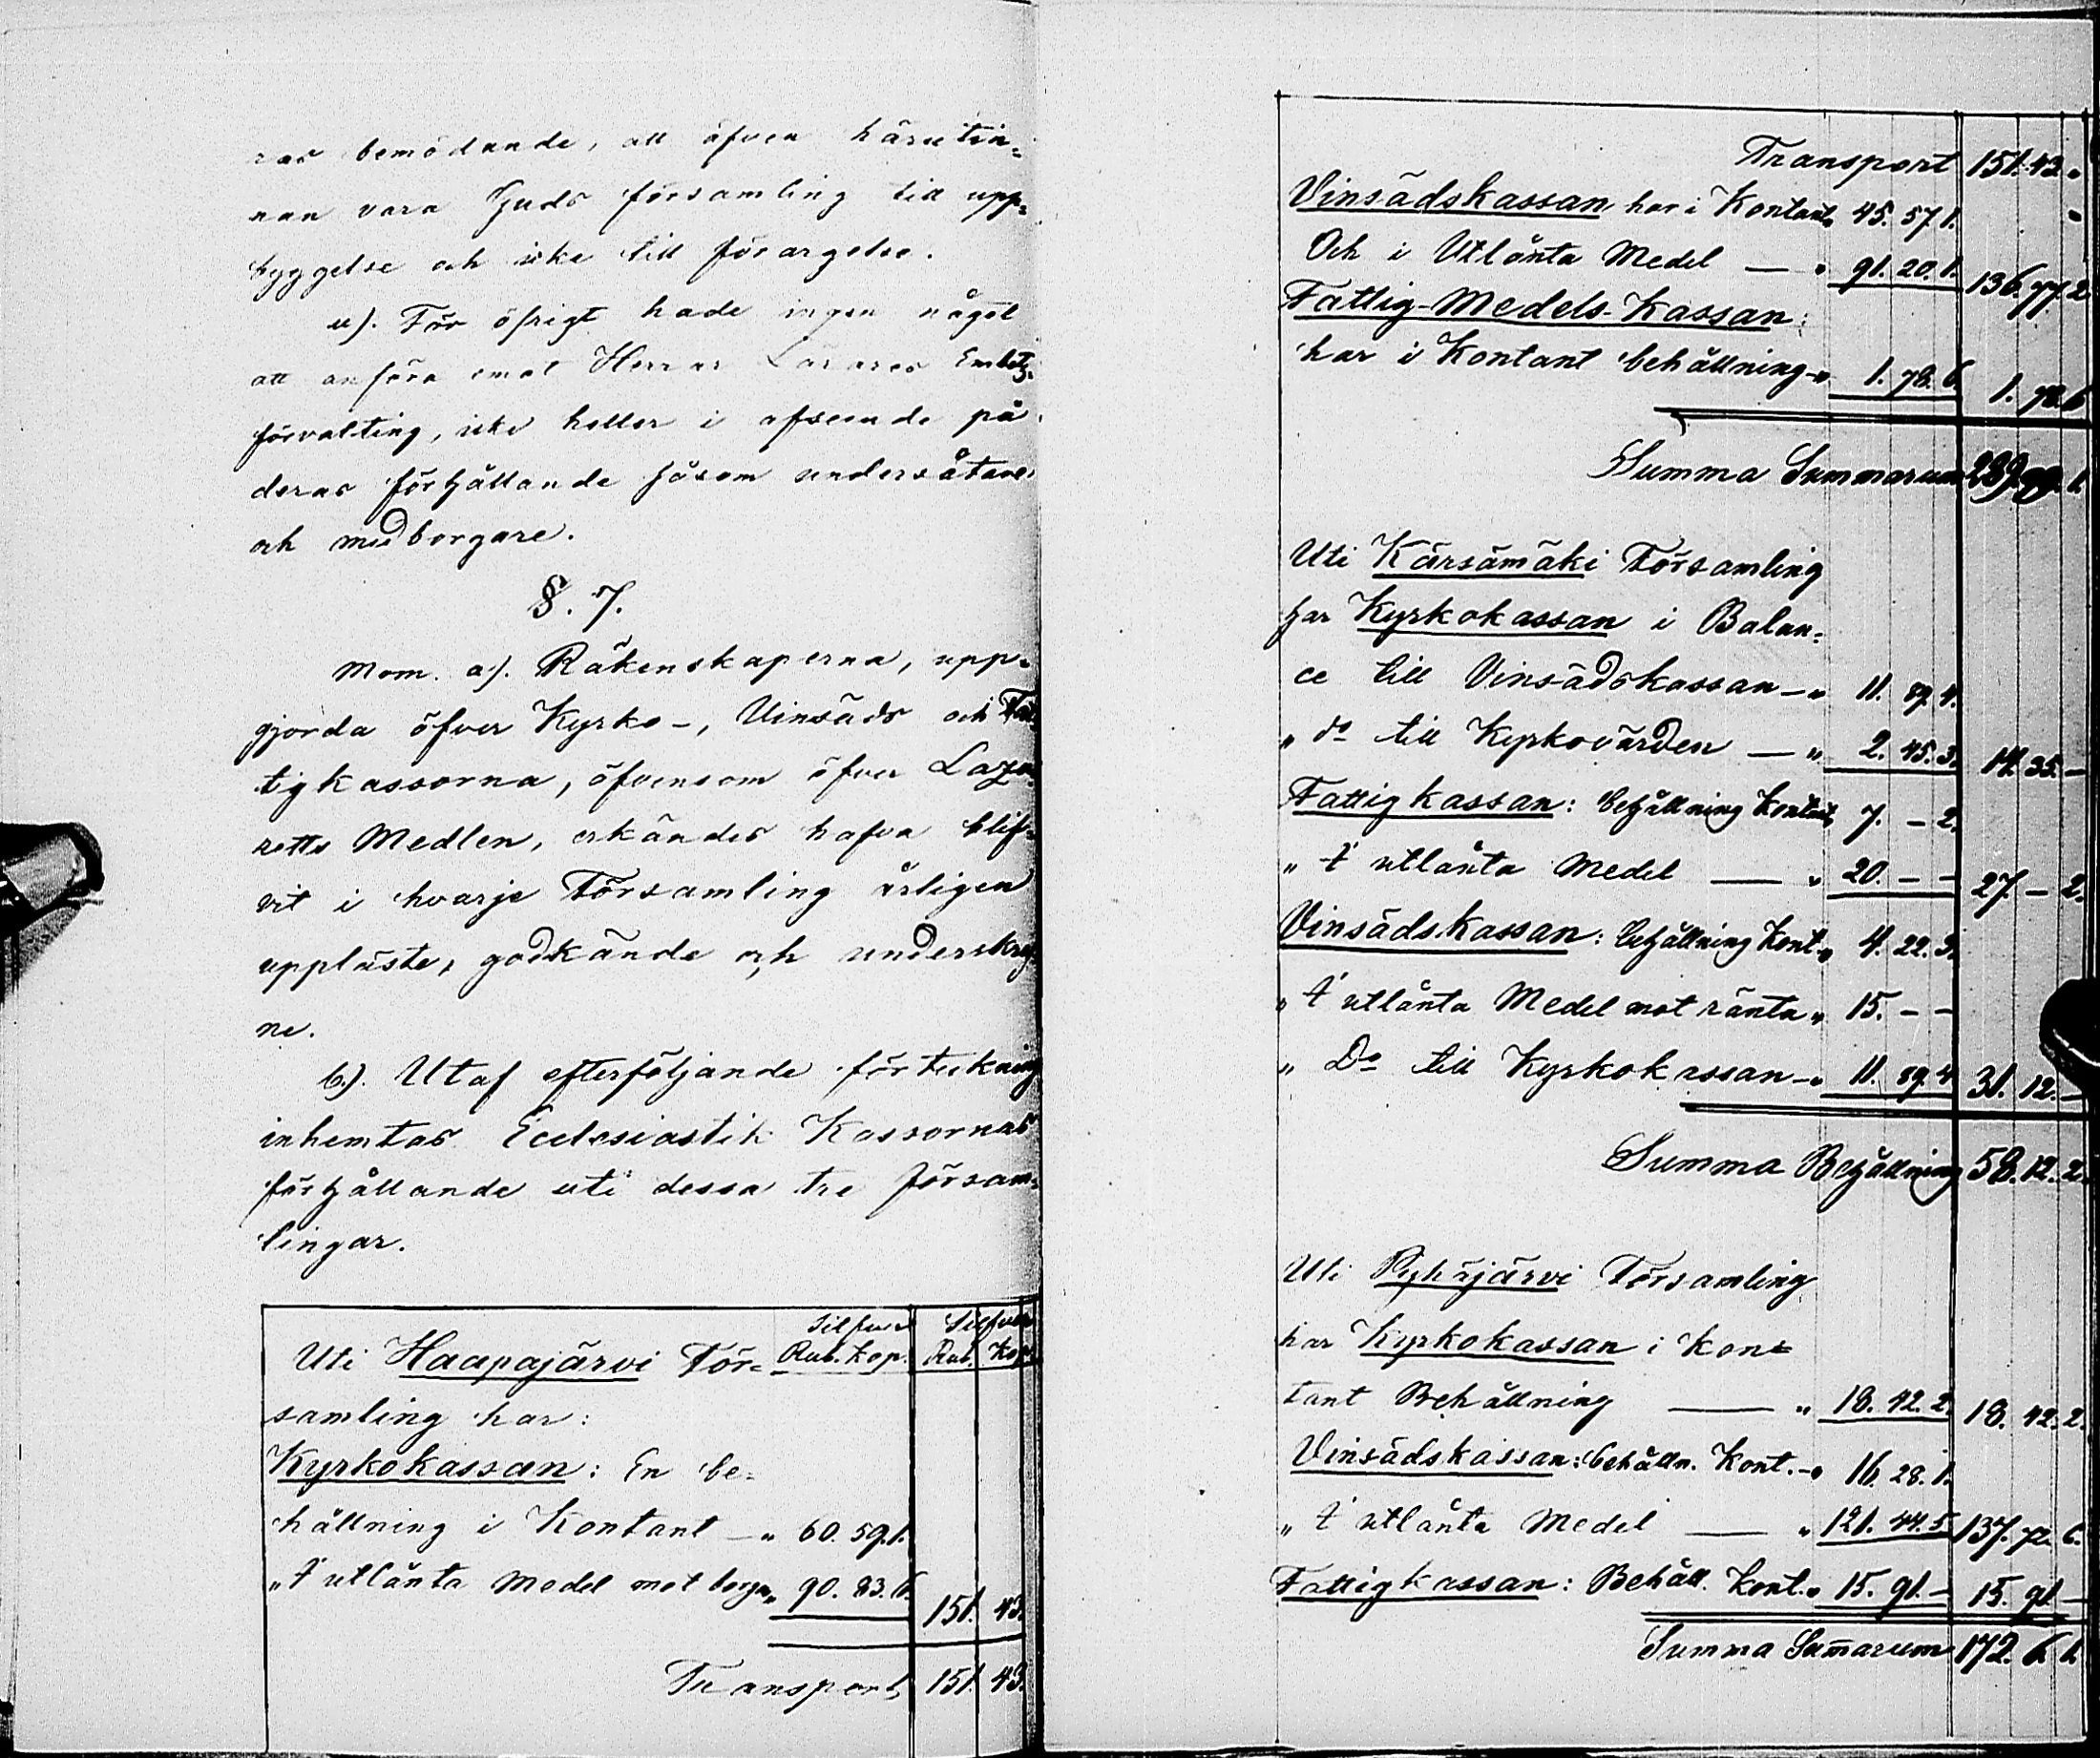 ras bemödande, att äfven härutin-
nan vara Guds församling till upp-
byggelse och icke till förargelse.
u). För öfrigt hade ingen något
att anföra emot Herrar Lärares Embets-
förvalting, icke heller i afseende på
deras förhållande såsom undersåtare
och medborgare.
§. 7.
Mom. a). Räkenskaperna, upp-
gjorda öfver Kyrko-, Vinsäds och Fat-
tigkassorna, äfvensom öfver Laza-
retts Medlen, erkändes hafva blif-
vit i hvarje Församling årligen
uppläste, godkände och underskref-
ne.
b). Utaf efterföljande förteckning
inhemtas Ecclesiastik Kassornas
förhållande uti dessa tre försam-
lingar.
Silfver Silfver
Uti Haapajärvi För- Rub. Kop. Rub. Kop.
samling har:
Kyrkokassan: En be-
hållning i Kontant — " 60. 59. 1.
" I utlånta Medel mot borgen " 90. 83. 6. 151. 43.
Transport 151. 43.
Transport 151. 43. "
Vinsädskassan har i Kontant " 45. 57. 1.
Och i Utlånta Medel — " 91. 20. 1. 136. 77. 2.
Fattig-Medels-Kassan:
har i Kontant behållning " 1. 78. 6. 1. 78. 6
Summa Summarum 289. 99. 1.
Uti Kärsämäki Församling
har Kyrkokassan i Balan-
ce till Vinsädskassan — " 11. 89. 4.
" do till Kyrkovärden — " 2. 45. 3. 14. 35. —
Fattigkassan: behållning Kontant 7. — 2.
" I utlånta Medel — " 20. — — 27. — 2.
Vinsädskassan: behållning Kont. " 4. 22. 3.
" I utlånta Medel mot ränta " 15. — —
" Do till Kyrkokassan — " 11. 89. 4 31. 12. —
Summa Behållning 58. 12. 2.
Uti Pyhäjärvi Församling
har Kyrkokassan i Kon-
tant Behållning — " 18. 42. 2. 18. 42. 2.
Vinsädskassan: behålln. Kont. — " 16. 28. 1.
" I utlånta Medel — " 121. 44. 5. 137. 72. 6.
Fattigkassan: Behåll. Kont. " 15. 91. — 15. 91 —
Summa Sum̄arum 172. 6. 1.